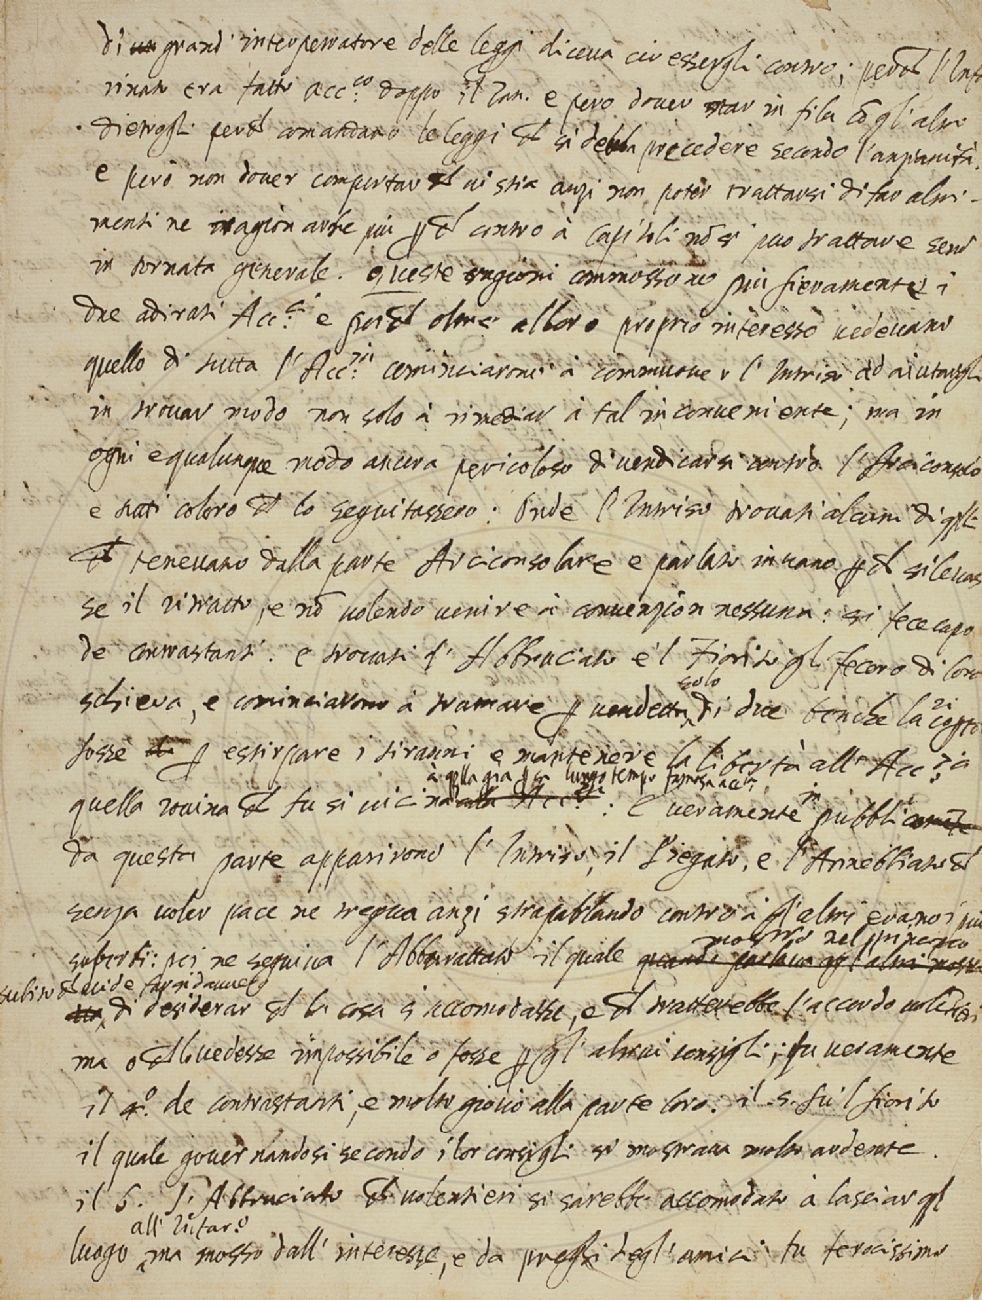 di un grand' interpretatore delle leggi diceva ciò essergli contro; però che l'Infa
rinato era fatto Acc.co doppo il Ran. e però dover star in fila cō gl'altri
dietrogli però che comandano le leggi che si debba precedere secondo l'anzianità.
e però non dover comportar che vi stia anzi non poter trattarsi di far altri-
menti ne ragionarne più per che contro à Capitoli nō si può trattare se nō
in tornata generale. queste ragioni commossono più fieramente i
due adirati Acc.ci e però che oltre al loro proprio interesse vedevano
quello di tutta l'Acc.a cominciarono à commuover l'Intriso ad aiutargli
in trovar modo non solo à rimediar à tal inconveniente; ma in
ogni e qualunque modo ancora pericoloso di vendicarsi contro l'Arciconsolo
e tutti coloro che lo seguitassero: Onde l'Intriso trovati alcuni di quelli
che tenevano dalla parte Arciconsolare e parlato in vano per che si levas
se il ritratto, e nō volendo venire à convenzion nessuna: si fece capo
de contrastanti. e trovati l'Abbruciato e'l Fiorito gli fecero di loro
schiera, e cominciarono à tramare per vendetta solo di due benche la
fosse per estirpare i tiranni e mantenere la libertà all' Acc.a
quella rovina che fu si vicina alla Acc.a: E veramente in pubblico
da questa parte apparirono l'Intriso, il Fregato, e l'Annebbiato che
senza voler pace ne tregua anzi strapablando contro à gl'altri erano i più
superbi: poi ne seguiva l'Abburattato il quale mostrò nel principio
subito che vide
di desiderar che la cosa s'accomodasse, e che tratterebbe l'accordo
ma o che lo vedesse impossibile o fosse per gl'altrui consigli; fu veramente
il 4.o de contrastanti, e molto giovò alla parte loro. il 5. fu il fiorito
il quale governandosi secondo i lor consigli si mostrava molto ardente.
il 6. l'Abbruciato che volentieri si sarebbe accomodato à lasciar quel
all' Infar.o
luogo ma mosso dall' interesse, e da preghi degl'amici fu ferocissimo